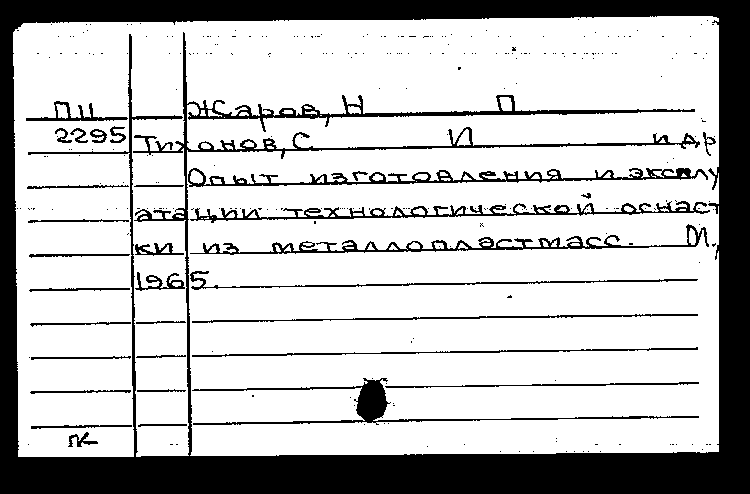 ПЦ Жаров, Н П
2295 Тиханов, С И и др
Опыт изготовления и эксплу
атации технологической оснаст
ки из металлопластмасс. М.,
1965.